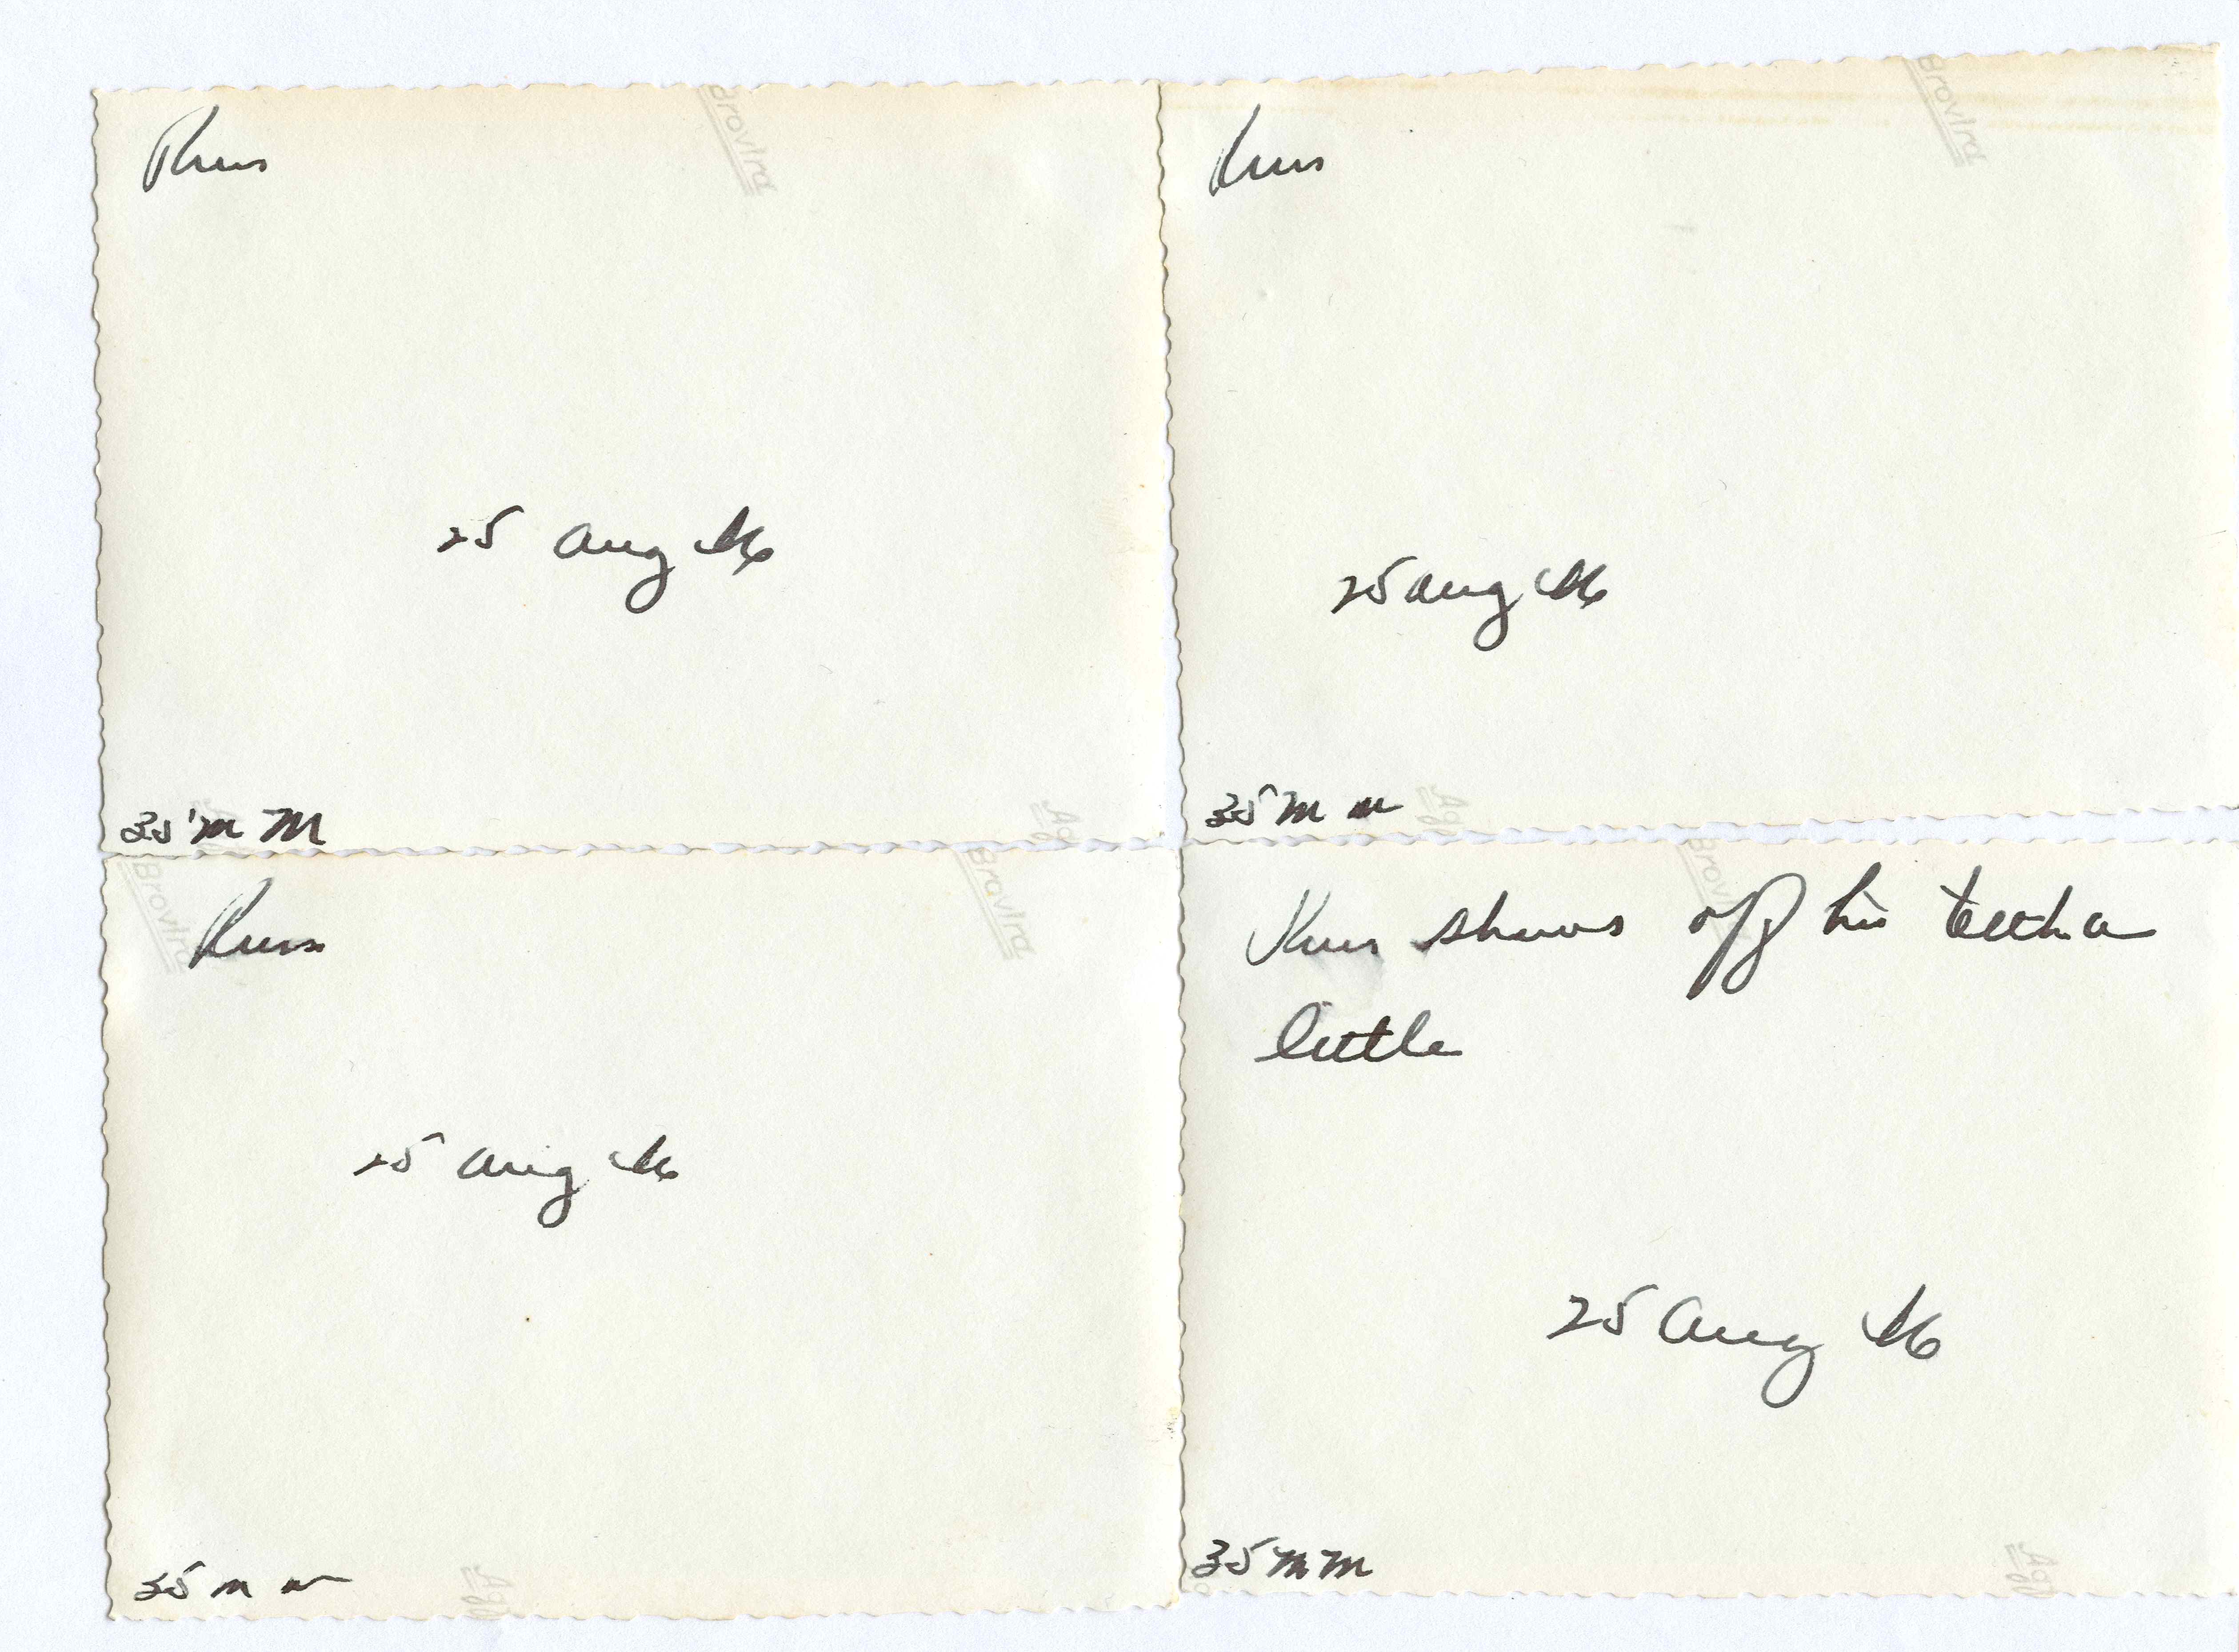 Brovira
Brovira
Russ
Russ
25 Aug 46
25 Aug 46
35 MM
35 mm
Brovira
Brovira
Brovira
Russ
Russ shows off his teeth a
little
25 Aug 46
25 Aug 46
35 mm
35 MM